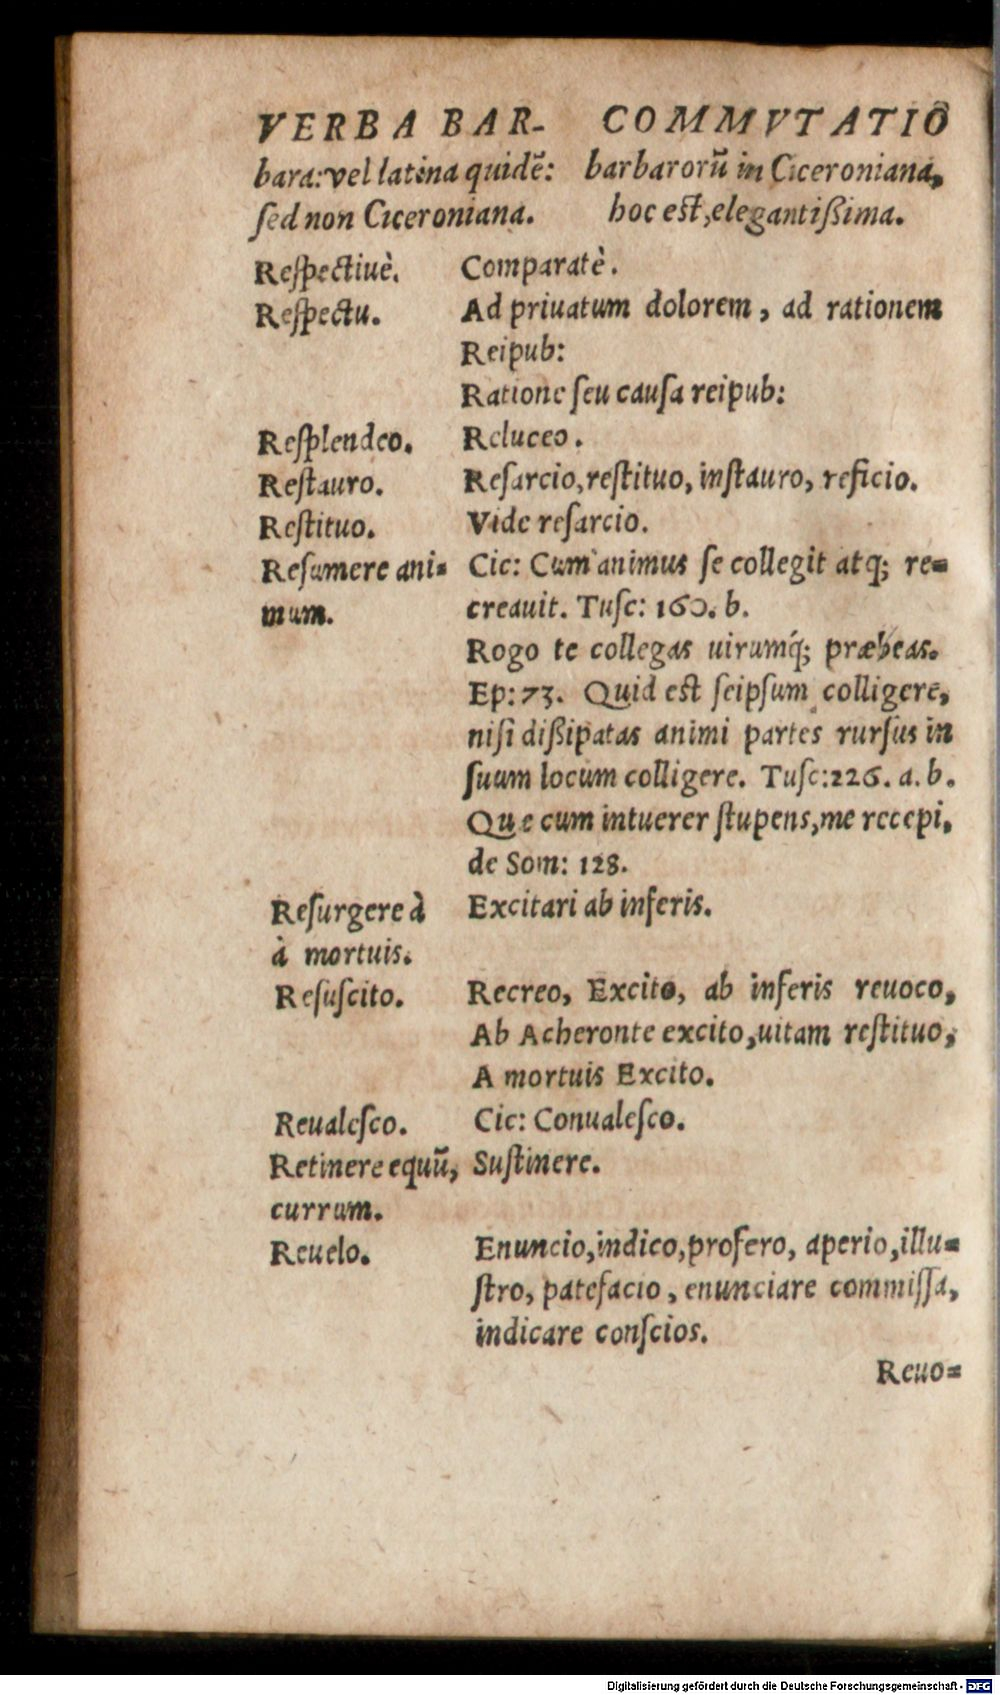 VERBA BAR- COMMVTATIO
bara: vel latina quidē: barbarorū in Ciceroniana,
ſed non Ciceroniana. hoc eſt, elegantißima.
Reſpectiuè. Comparatè.
Reſpectu. Ad priuatum dolorem, ad rationem
Reipub:
Ratione ſeu cauſa reipub:
Reſplendeo. Reluceo.
Reſtauro. Reſarcio, reſtituo, inſtauro, reficio.
Reſtituo. Vide reſarcio.
Reſumere ani- Cic: Cum animus ſe collegit atq; re-
mum. creauit. Tuſc: 160. b.
Rogo te collegas uirumq́; præbeas.
Ep: 73. Quid eſt ſeipſum colligere,
niſi dißipatas animi partes rurſus in
ſuum locum colligere. Tuſc: 226. a. b.
Que cum intuerer ſtupens, me recepi,
de Som: 128.
Reſurgere à Excitari ab inferis.
à mortuis.
Reſuſcito. Recreo, Excito, ab inferis reuoco,
Ab Acheronte excito, uitam reſtituo,
A mortuis Excito.
Reualeſco. Cic: Conualeſco.
Retinere equū, Suſtinere.
currum.
Reuelo. Enuncio, indico, profero, aperio, illu-
ſtro, patefacio, enunciare commiſſa,
indicare conſcios.
Reuo-
Digitalisierung gefördert durch die Deutsche Forschungsgemeinschaft - DFG